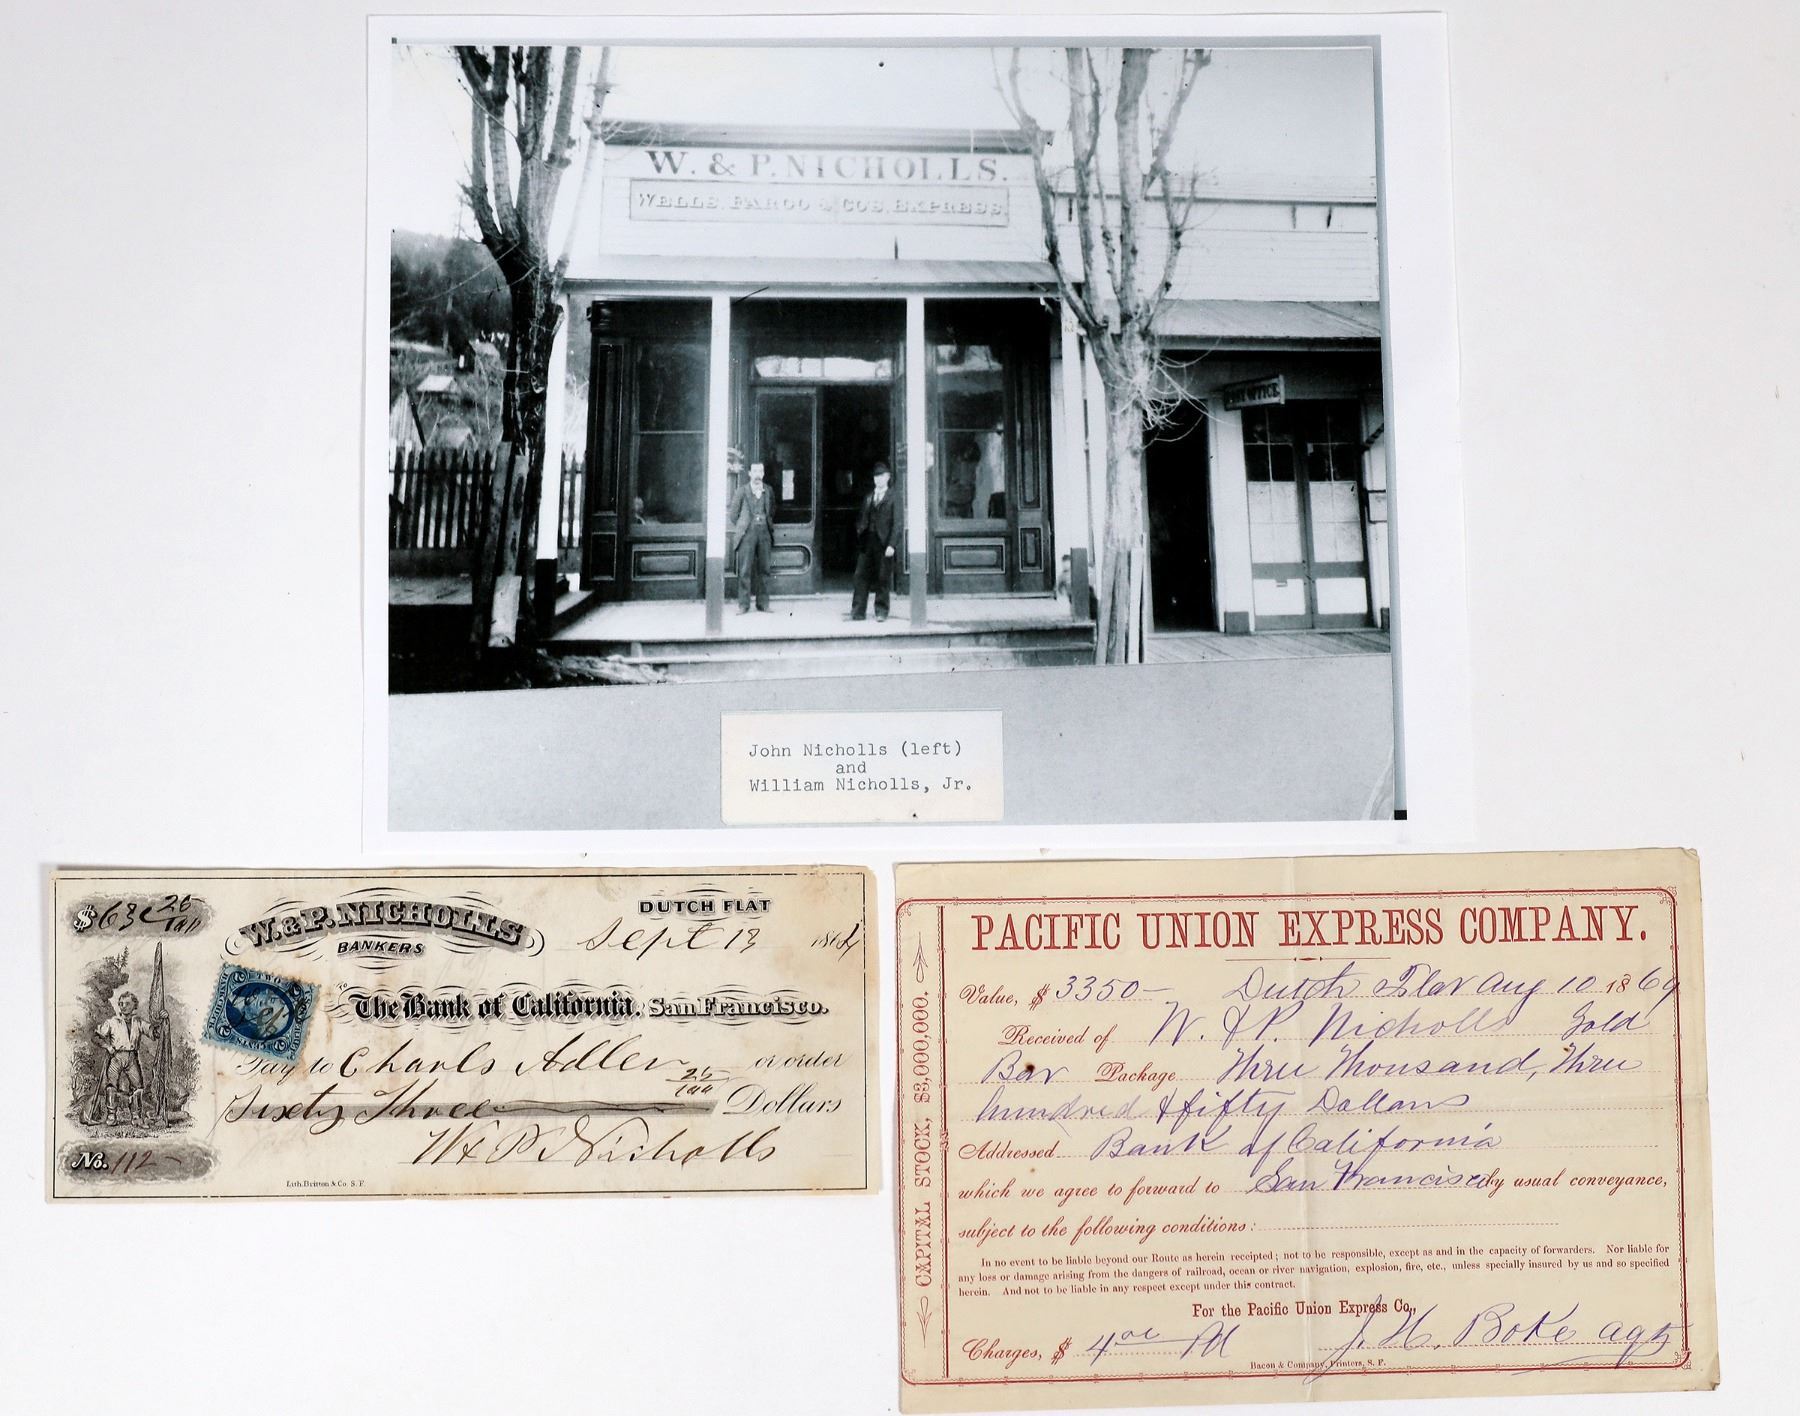 W. & P. NICHOLLS.
WELLS, FARGO & CO'S. EXPRESS.
OFFICE
John Nicholls (left)
and
William Nicholls, Jr.
$63 25/100
W. & P. NICHOLLS
BANKERS
DUTCH FLAT
Sept 13 1864
TWO
To The Bank of California, San Francisco.
Pay to Charls Adler or order
Sixty Three 25/100 Dollars
W & P Nicholls
No. 112
Lith. Britton & Co. S. F.
PACIFIC UNION EXPRESS COMPANY.
CAPITAL STOCK, $3,000,000.
Value, $ 3350 — Dutch Flat Aug 10 1869
Received of W. & P. Nicholls Gold
Bar Package Three Thousand, Three
hundred & fifty Dollars
Addressed Bank of California
which we agree to forward to San Francisco by usual conveyance,
subject to the following conditions:
In no event to be liable beyond our Route as herein receipted; not to be responsible, except as and in the capacity of forwarders. Nor liable for
any loss or damage arising from the dangers of railroad, ocean or river navigation, explosion, fire, etc., unless specially insured by us and so specified
herein. And not to be liable in any respect except under this contract.
For the Pacific Union Express Co.,
Charges, $ 4 00 Pd J. H. Boke agt
Bacon & Company, Printers, S. F.